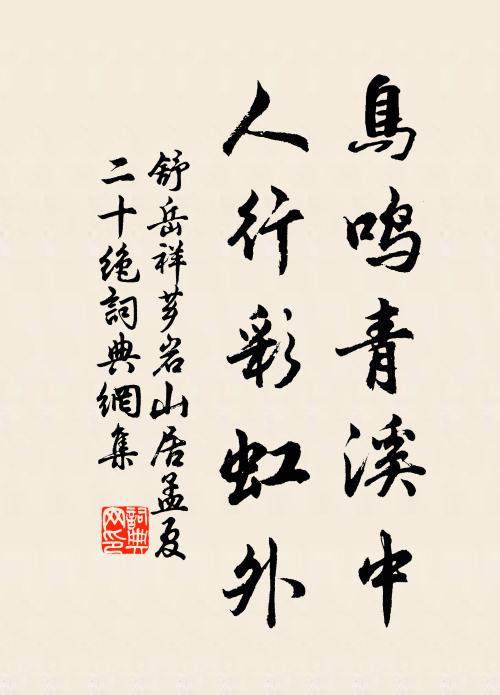 鳥鳴青溪中
人行彩虹外
舒岳祥芗岩山居孟夏
二十绝詞典網集
詞典
网印